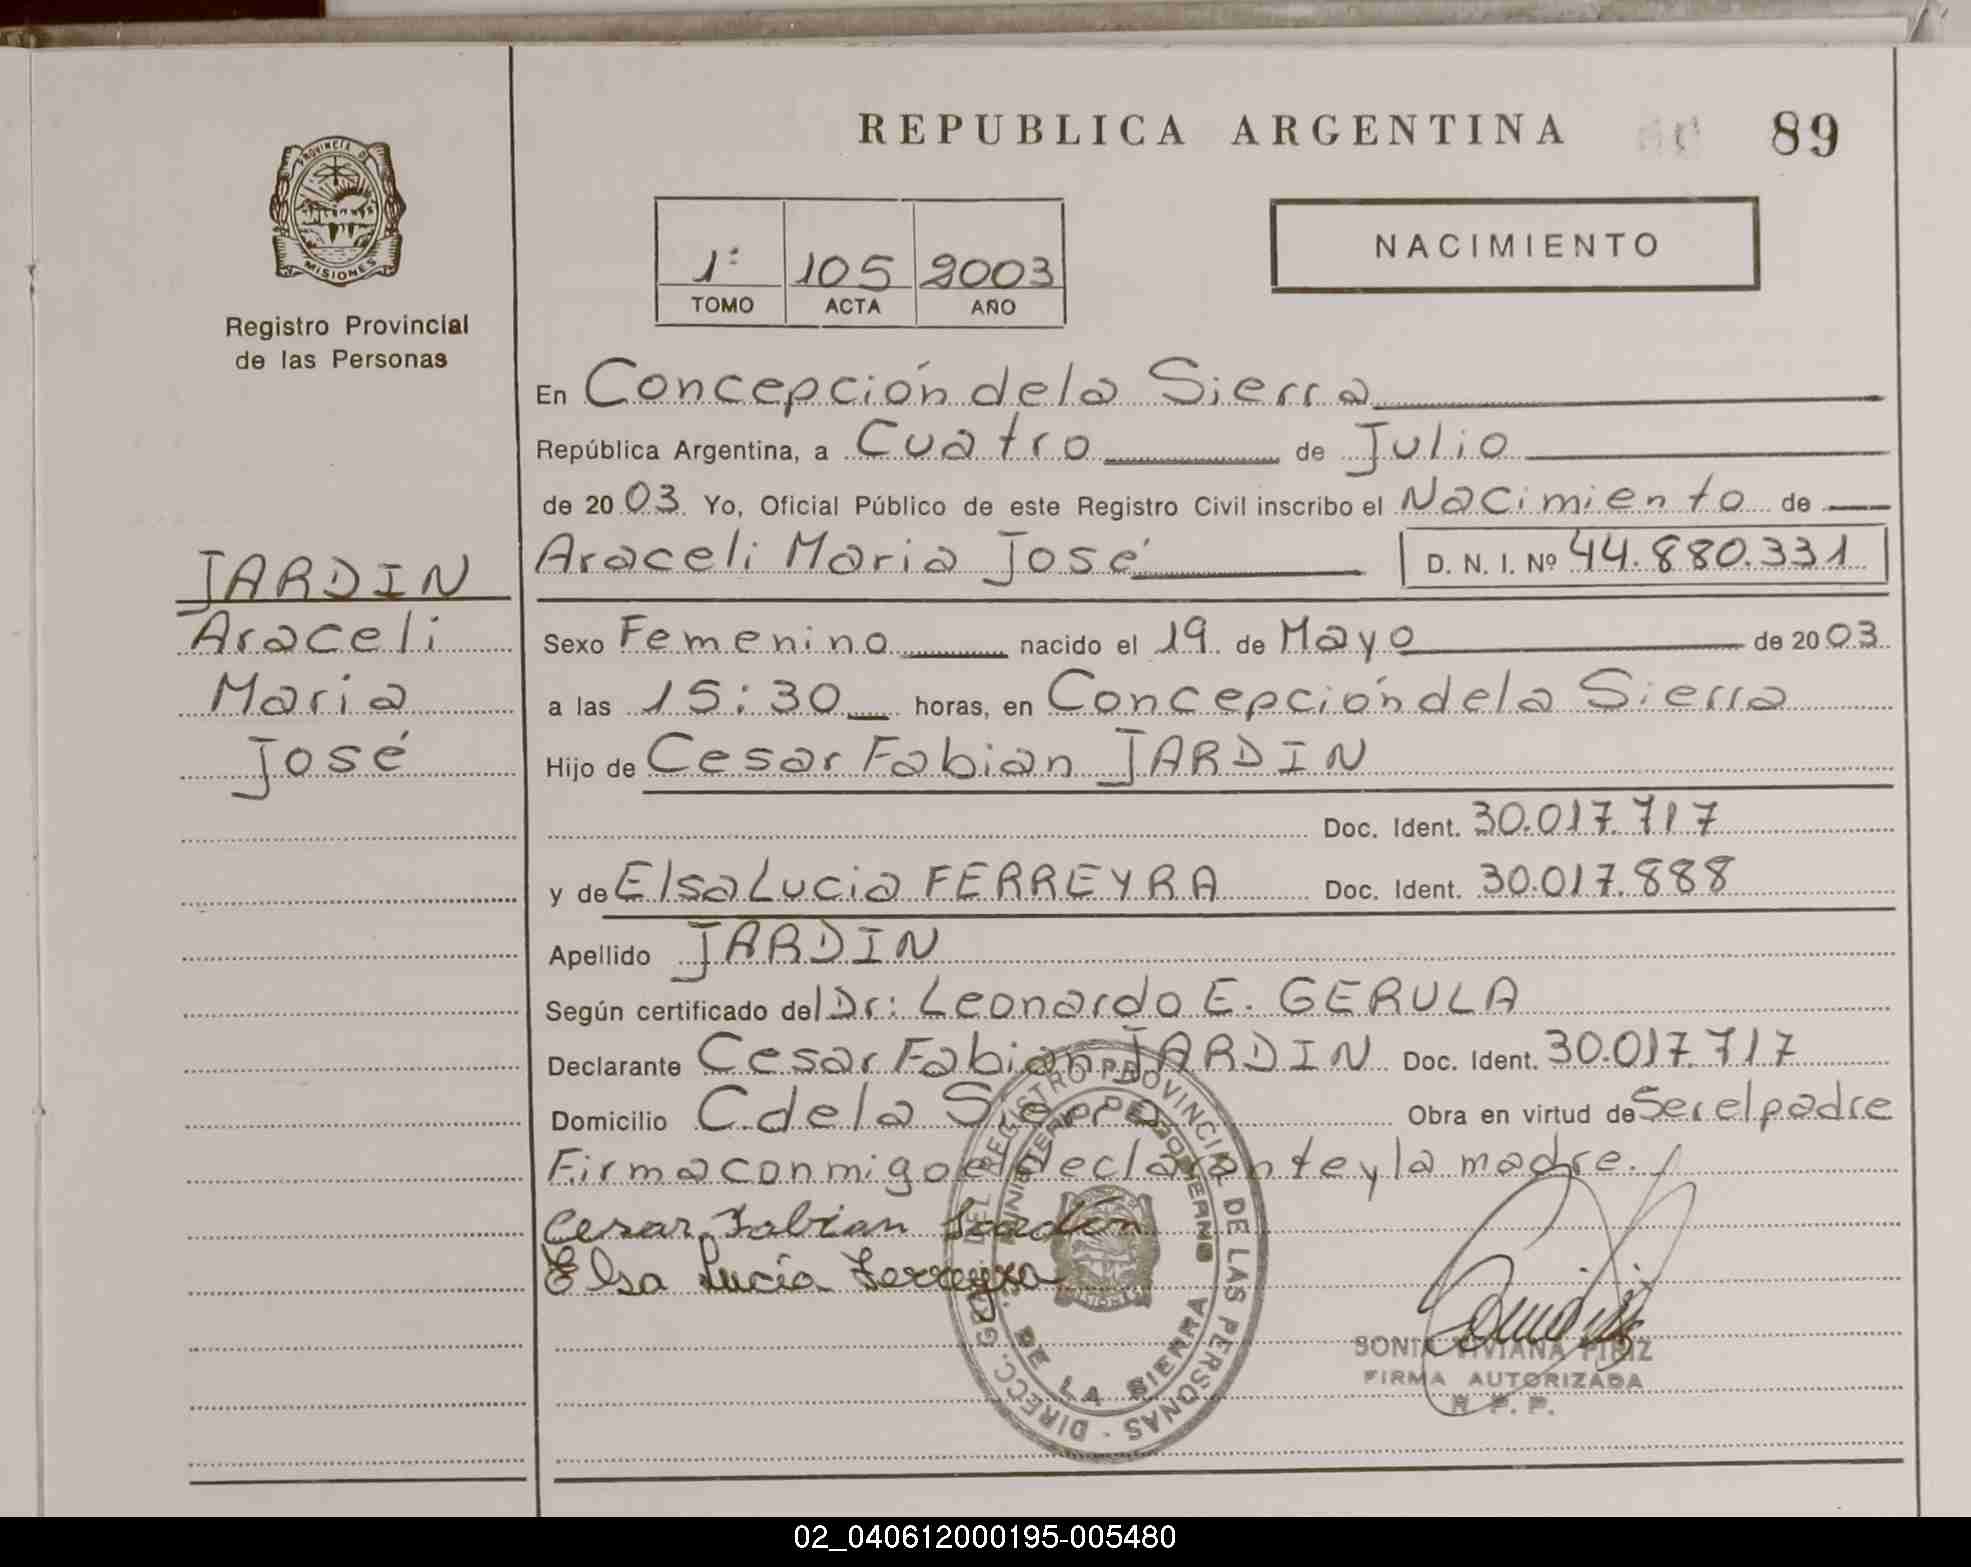 REPUBLICA ARGENTINA 89
PROVINCIA DE
MISIONES
Registro Provincial
de las Personas
1º 105 2003
TOMO ACTA AÑO
NACIMIENTO
En Concepción de la Sierra
República Argentina, a Cuatro de Julio
de 2003 Yo, Oficial Público de este Registro Civil inscribo el Nacimiento de
Araceli Maria José D. N. I. Nº 44.880.331
JARDIN
Araceli
Maria
José
Sexo Femenino nacido el 19 de Mayo de 2003
a las 15:30 horas, en Concepción de la Sierra
Hijo de Cesar Fabian JARDIN
Doc. Ident. 30.017.717
y de Elsa Lucia FERREYRA Doc. Ident. 30.017.888
Apellido JARDIN
Según certificado del Dr: Leonardo E. GERULA
Declarante Cesar Fabian JARDIN Doc. Ident. 30.017.717
Domicilio C. de la Sierra Obra en virtud de Ser el padre
Firma conmigo el declarante y la madre.
Cesar Fabian Jardín
Elsa Lucía Ferreyra
DIRECC. GRAL. DEL REGISTRO PROVINCIAL DE LAS PERSONAS
MINISTERIO DE GOBIERNO
DE LA SIERRA
MISIONES
SONIA VIVIANA PIRIZ
FIRMA AUTORIZADA
R. P. P.
02_040612000195-005480